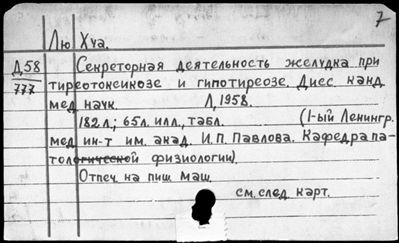 7
Лю Хуа.
Д58 Секреторная деятельность желудка при
777 тиреотоксикозе и гипотиреозе. Дисс. канд
мед наук. Л, 1958.
182л.; 65л. илл., табл. (1-ый Ленингр.
мед ин-т им. акад. И.П. Павлова. Кафедра па-
тологической физиологии).
Отпеч. на пиш. маш.
см. след. карт.